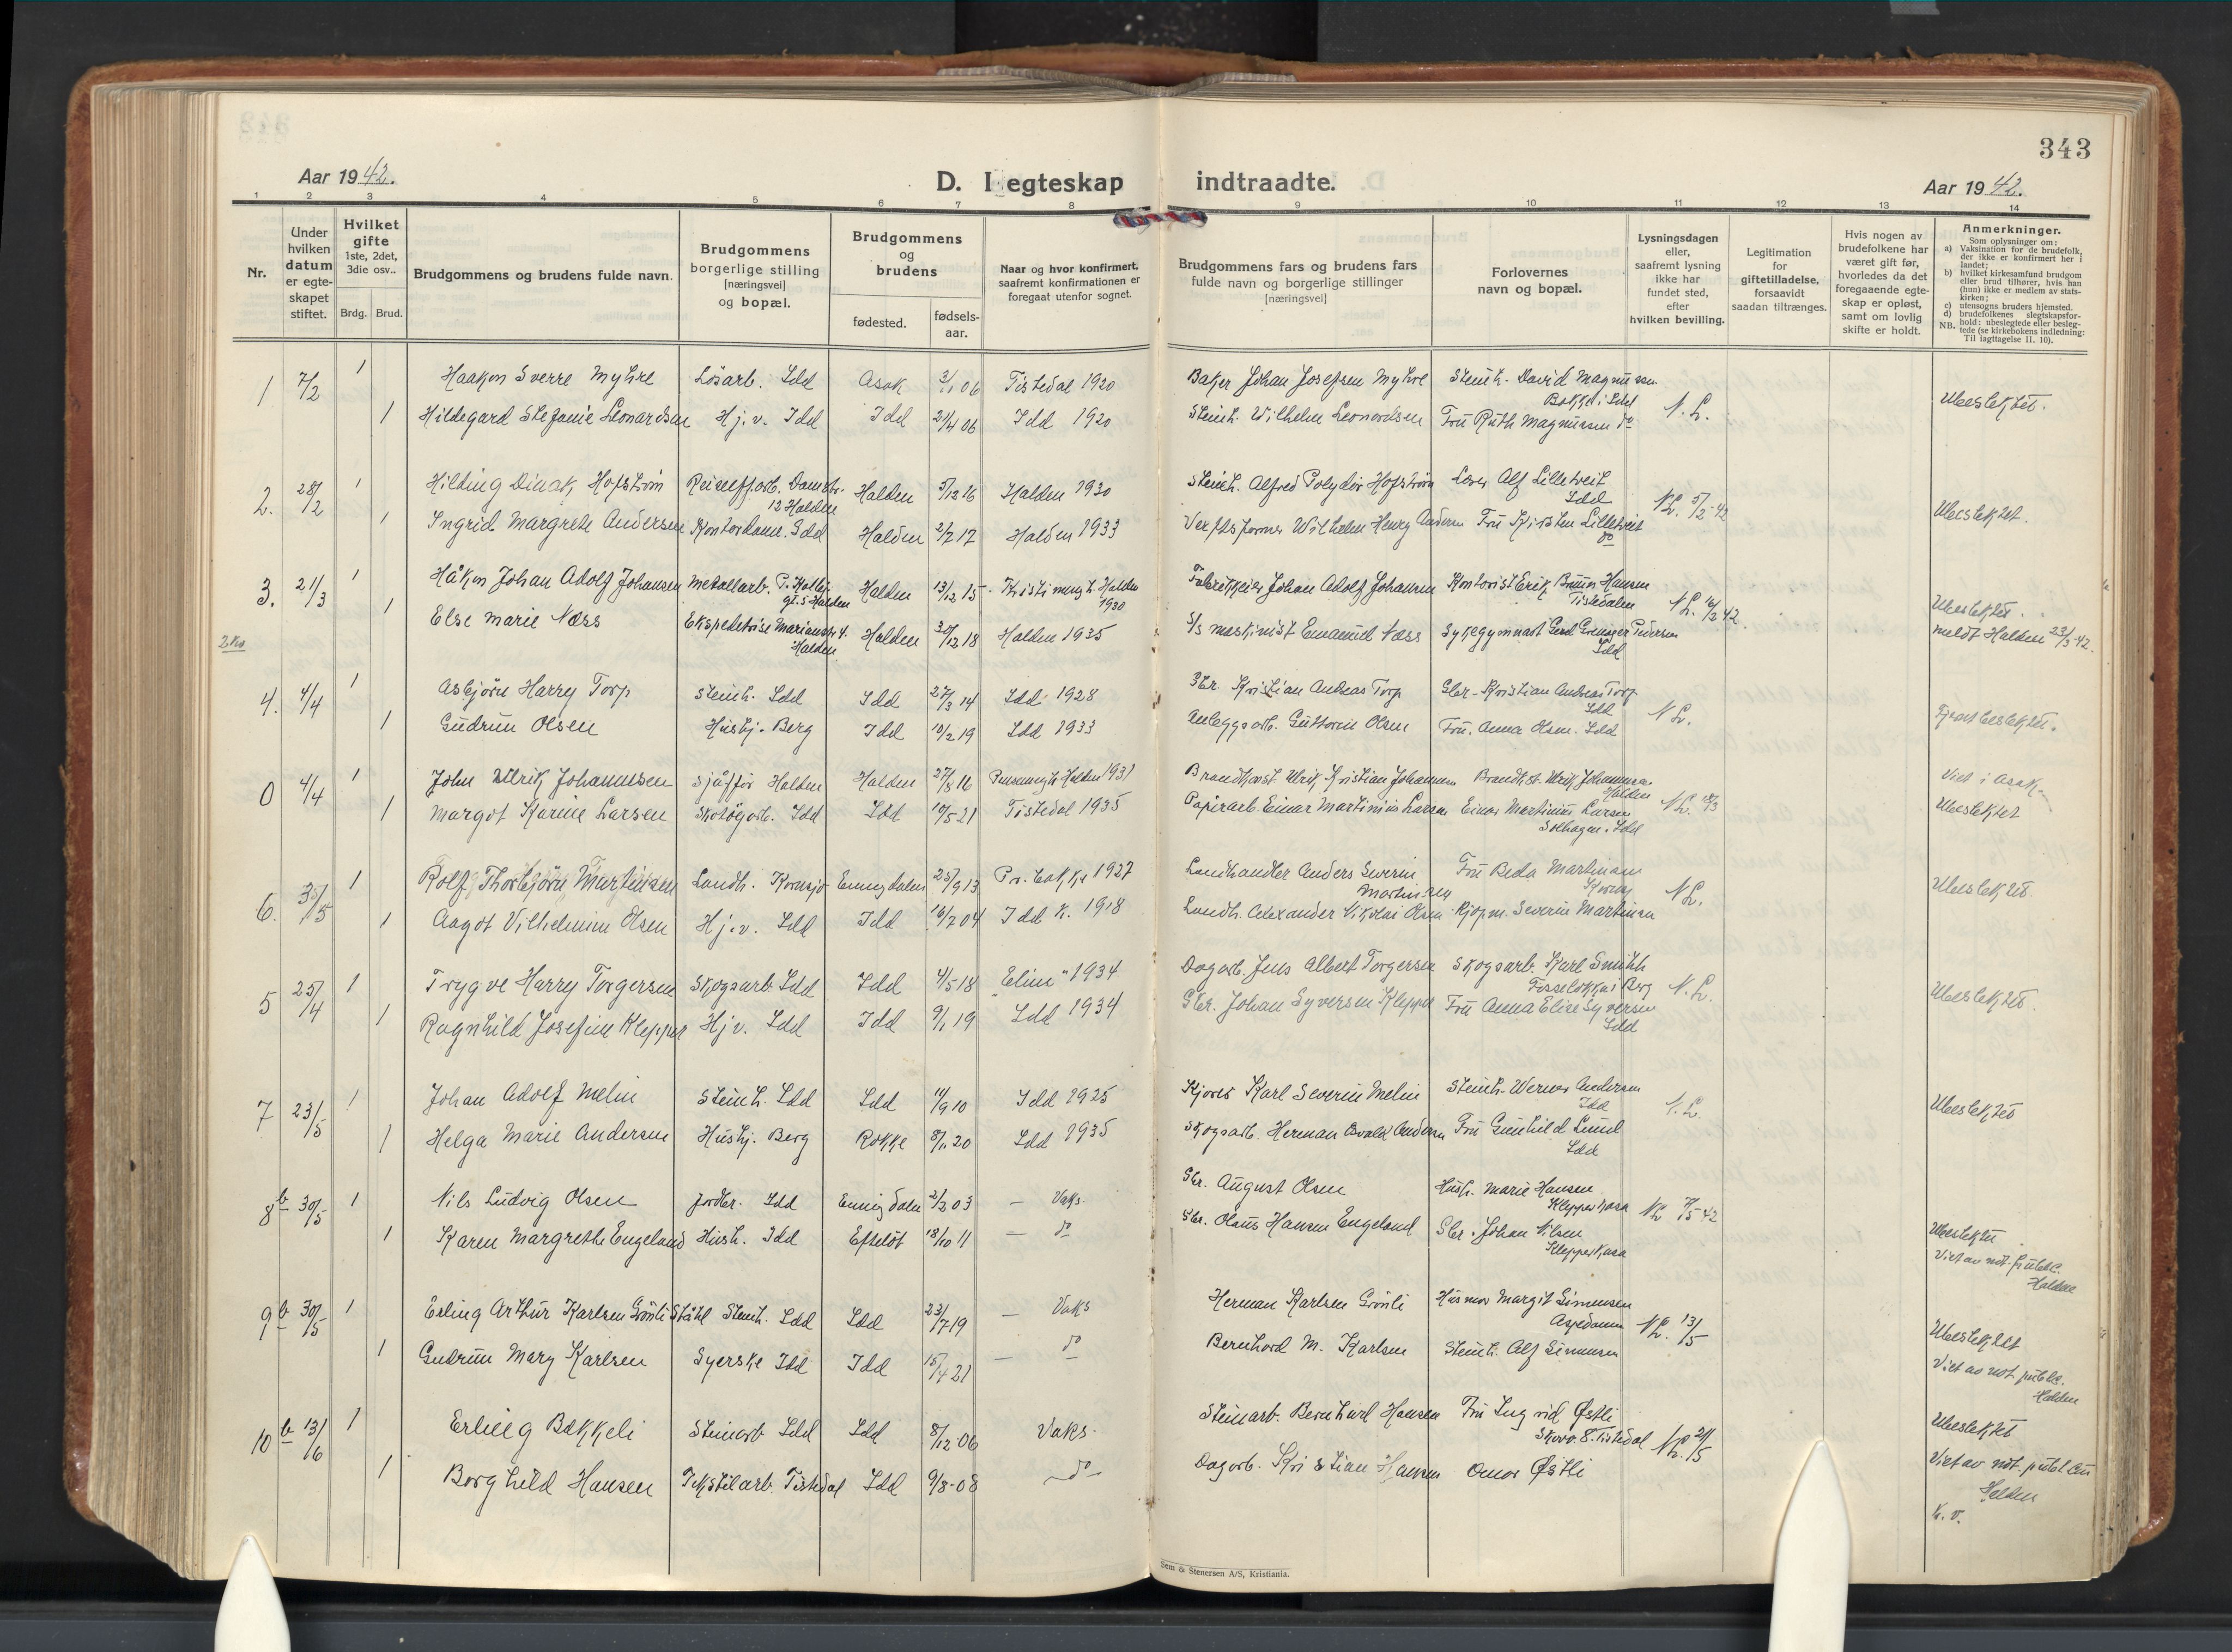 343
Aar 1942.
D. I egteskap indtraadte.
Aar 1942.
1 2 3 4 5 6 7 8 9 10 11 12 13 14
Nr.
Under hvilken datum er egteskapet stiftet.
Hvilket gifte 1ste, 2det, 3die osv..
Brdg. Brud.
Brudgommens og brudens fulde navn.
Brudgommens borgerlige stilling [næringsvei] og bopæl.
Brudgommens og brudens
fødested.
fødsels-aar.
Naar og hvor konfirmert, saafremt konfirmationen er foregaat utenfor sognet.
Brudgommens fars og brudens fars fulde navn og borgerlige stillinger [næringsvei]
Forlovernes navn og bopæl.
Lysningsdagen eller, saafremt lysning ikke har fundet sted, efter hvilken bevilling.
Legitimation for giftetilladelse, forsaavidt saadan tiltrænges.
Hvis nogen av brudefolkene har været gift før, hvorledes da det foregaaende egteskap er opløst, samt om lovlig skifte er holdt.
Anmerkninger.
Som oplysninger om:
a) Vaksination for de brudefolk, der ikke er konfirmert her i landet;
b) hvilket kirkesamfund brudgom eller brud tilhører, hvis han (hun) ikke er medlem av statskirken;
c) utensogns bruders hjemsted.
d) brudefolkenes slegtskapsforhold: ubeslegtede eller beslegtede (se kirkebokens indledning:
NB. Til iagttagelse II. 10).
1 7/2 1 Haakon Sverre Myhre Løsarb. Idd Asak 3/1 06 Tistedal 1920 Baker Johan Josefsen Myhre Steinh. David Magnussen Bakke i Idd N.L. Ubeslektet.
1 Hildegard Stefanie Leonardsen Hj.v. Idd Idd 21/4 06 Idd 1920 Steinh. Vilhelm Leonardsen Fru Ruth Magnussen do
2. 28/2 1 Hilding Hofstrøm Damstr. 12 Halden Halden 5/12 16 Halden 1930 Steinh. Alfred Polydor Hofstrøm Alf Lilletveit Idd N.L. 5/2-42 Ubeslektet.
1 Ingrid Margrete Andersen Kontordame. Idd Halden 2/7 17 Halden 1933 Verftsformer Wilhelm Henry Andersen Fru Kirsten Lilletveit do
3. 21/3 1 Håkon Johan Adolf Johansen Metallarb. Halden Halden 13/12 15 Halden 1930 Johan Adolf Johansen Kontorist Erik Bruun Hansen Tistedalen N.L. 16/2 42. Ubeslektet.
1 Else Marie Næss Ekspeditrise Marianstr 4. Halden Halden 30/12 18 Halden 1935 S/S maskinist Emanuel Næss Sykegymnast Gerd Pedersen Idd meldt Halden 23/3-42.
4. 4/4 1 Asbjørn Harry Torp Steinh. Idd Idd 27/3 14 Idd 1928 Gbr. Kristian Andreas Torp Gbr. Kristian Andreas Torp Idd N.L.
1 Gudrun Olsen Hushj. Berg Idd 10/2 19 Idd 1933 Anleggsarb. Guttorm Olsen Fru. Anna Olsen. Idd Fjernt beslektet.
0 4/4 1 John Ulrik Johannesen Sjåffør Halden Halden 27/8 16 Halden 1931 Ulrik Kristian Johannesen Ulrik Johannesen Halden N.L. Viet i Asak
1 Margot Karine Larsen Skotøyarb. Idd Idd 10/5 21 Tistedal 1935 Papirarb. Einar Martinius Larsen Einar Martinius Larsen Solhagen. Idd Ubeslektet
6. 30/5 1 Rolf Thorbjørn Martinsen Landh. Kornsjø Enningdalen 25/9 13 1927 Landhandler Anders Severin Martinsen Fru Beda Martinsen Kornsj N.L. Ubeslektet
1 Aagot Vilhelmine Olsen Hj.v. Idd Idd 16/7 04 Idd K. 1918 Landh. Alexander Nikolai Olsen Kjøpm. Severin Martinsen
5 25/4 1 Trygve Harry Torgersen Skogsarb. Idd Idd 4/5 18 "Elim" 1934 Dagarb. Jens Albert Torgersen Skogsarb. Karl Smith Fosseløkka i Berg N.L. Ubeslektet.
1 Ragnhild Josefine Klepper Hj v. Idd Idd 9/1 19 Idd 1934 Gbr. Johan Syversen Klepper Fru Anna Elise Syversen Idd
7 23/5 1 Johan Adolf Melin Steinh. Idd Idd 11/9 10 Idd 1925 Kjører Karl Severin Melin Steinh. Werner Andersen Idd N.L. Ubeslektet
1 Helga Marie Andersen Hushj. Berg Rokke 8/1 20 Idd 1935 Skogsarb. Herman Osvald Andersen Fru Gunhild Lund Idd
8 b 30/5 1 Nils Ludvig Olsen Jordbr. Idd Enningdalen 2/2 03 – Vaks. Gbr. August Olsen Hush. Marie Hansen Klepperkasa NL 11/5 42
1 Karen Margrethe Engeland Hush. Idd Efteløt 18/10 11 – do Gbr. Olaus Hansen Engeland Gbr. Johan Nilsen Klepperkasa Ubeslektet Viet av not. publ. Halden
9 b 30/5 1 Erling Arthur Karlsen Grønli Ståhl Steinh. Idd Idd 23/7 19 – Vaks Herman Karlsen Grønli Husmor Margit Simensen Aspedammen NL. 13/5
1 Gudrun Mary Karlsen Syerske Idd Idd 15/4 21 – do Bernhard M. Karlsen Steinh. Alf Simensen Ubeslektet Viet av not publ. Halden
10 b 13/6 1 Erling Bakkeli Steinarb Idd Idd 8/12-06 Vaks. Steinarb. Bernhard Hansen Fru Ingrid Østli Tistedal NL. 21/5 Ubeslektet
1 Borghild Hansen Tekstilarb. Tistedal Idd 9/8-08 do Dagarb. Kristian Hansen Omar Østli Viet av not. publ. Halden
K. v.
Sem & Stenersen A/S, Kristiania.